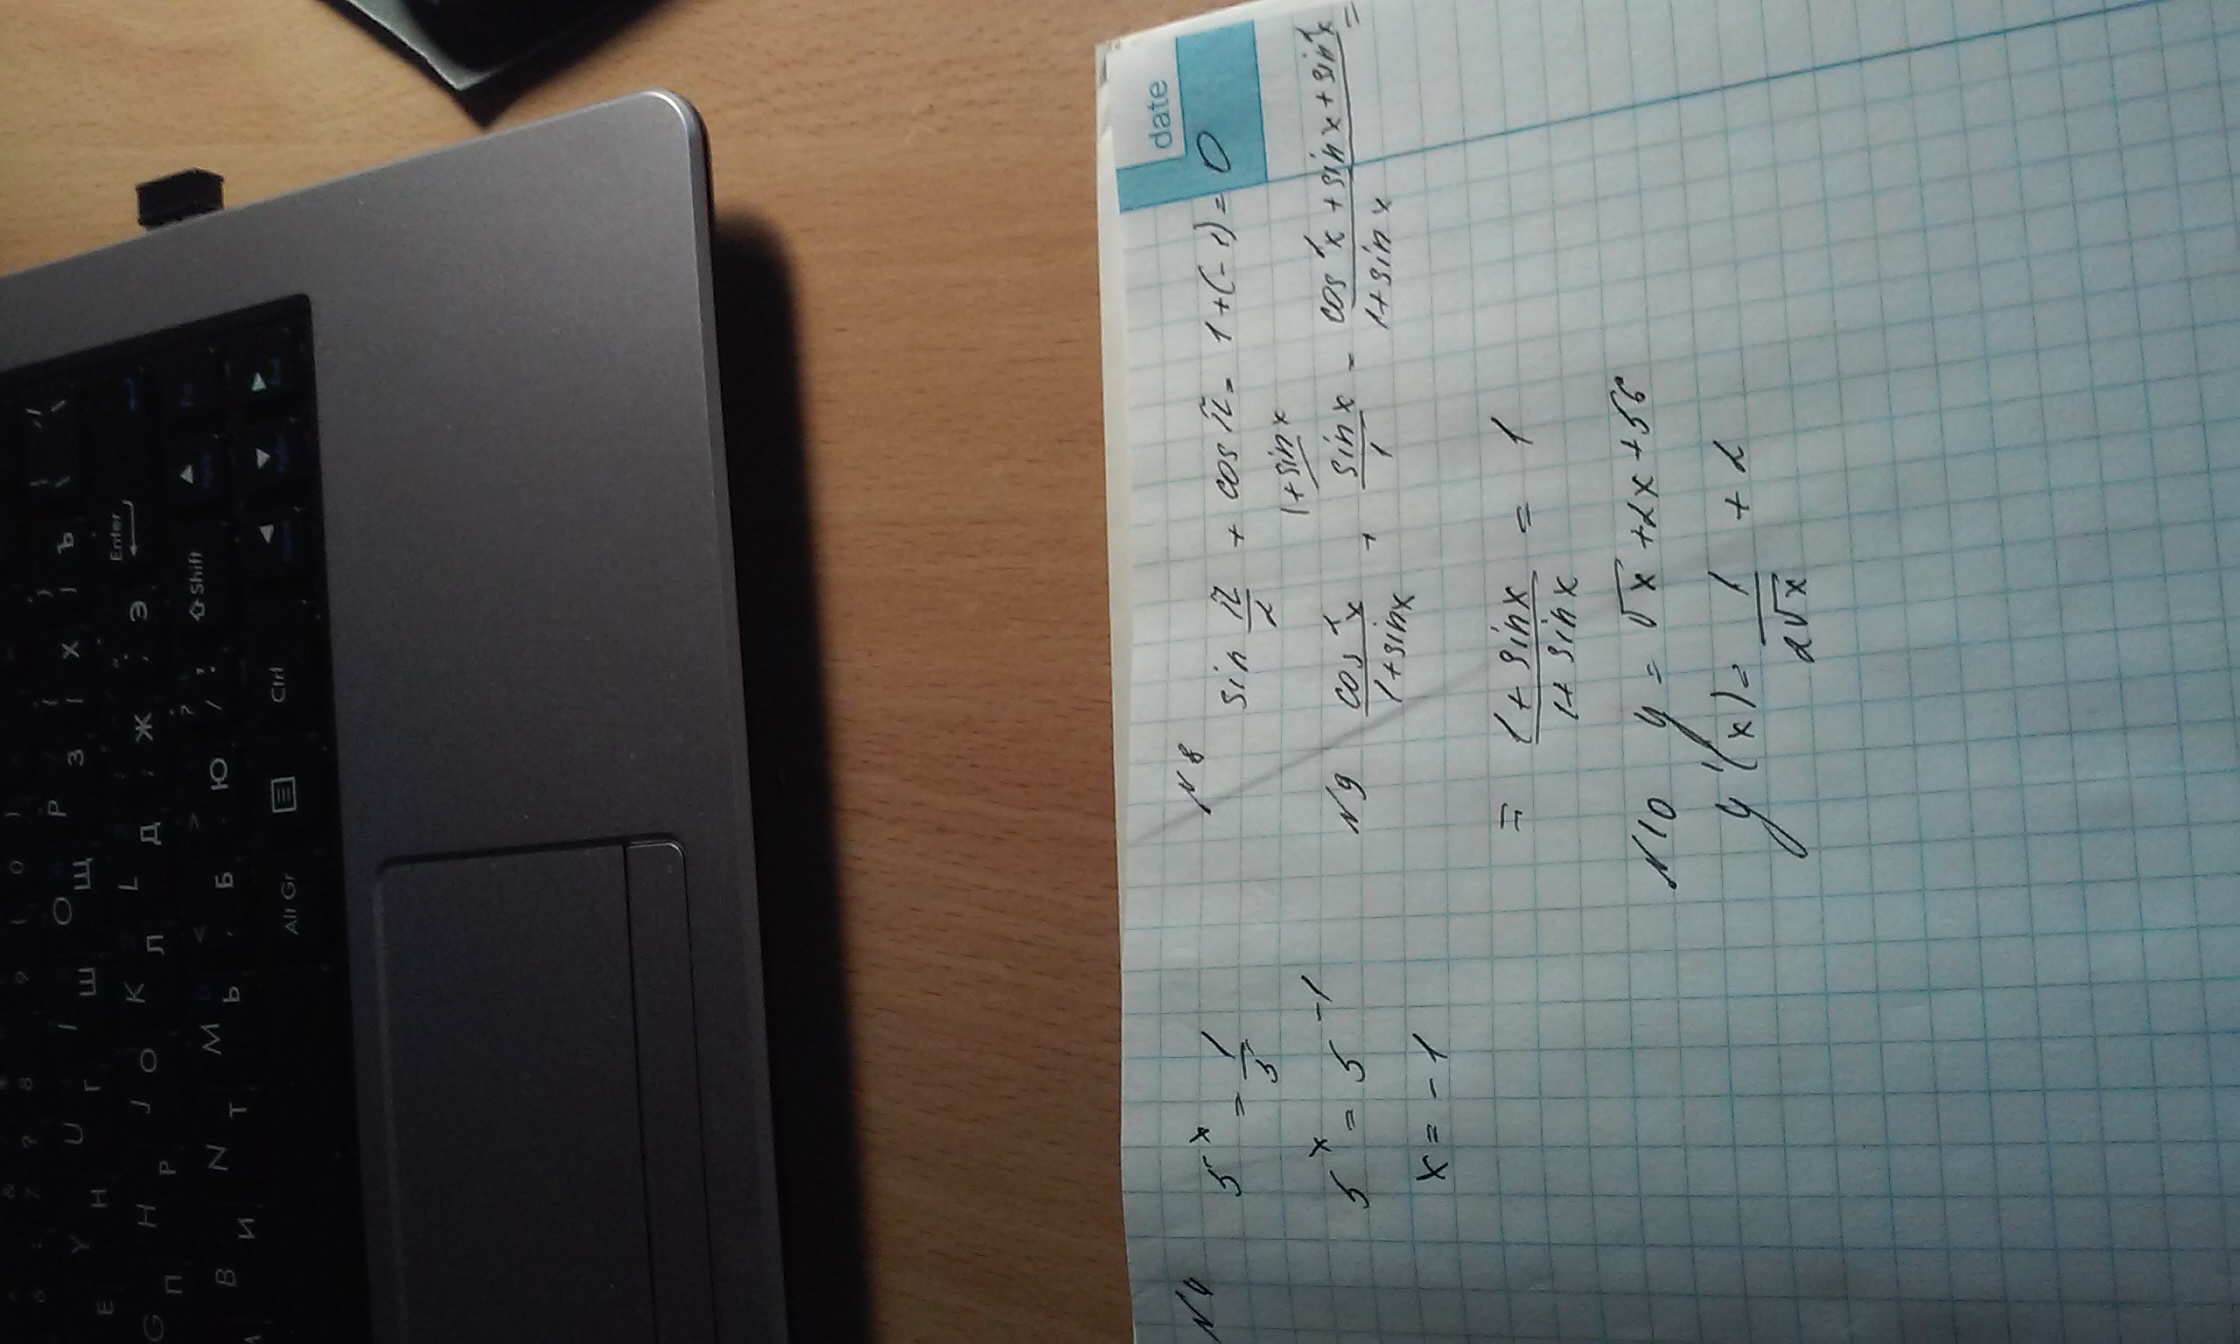 date
N4
5^x = 1/5
5^x = 5^-1
x = -1
N8
sin π/2 + cos π = 1 + (-1) = 0
1+sin x
N9 cos²x/(1+sin x) + sin x/1 = (cos²x + sin x + sin²x)/(1+sin x) =
= (1+sin x)/(1+sin x) = 1
N10 y = √x + 2x + 56
y'(x) = 1/(2√x) + 2
Enter
Shift
Ctrl
Alt Gr
Э
Ж
Д
Л
Ю
Б
Ь
Ъ
Х
З
Щ
Ш